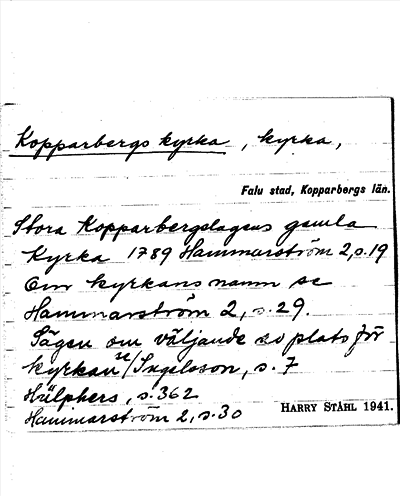 Kopparbergs kyrka, kyrka,
Falu stad, Kopparbergs län.
Stora Kopparbergslagens gamla
Kyrka 1789 Hammarström 2, s.19
Om kyrkans namn se
Hammarström 2, s.29.
Sägen om väljande av plats för
kyrkan se/Ingelsson, s.7
Hülphers, s.362
Hammarström 2, s.30
HARRY STÅHL 1941.